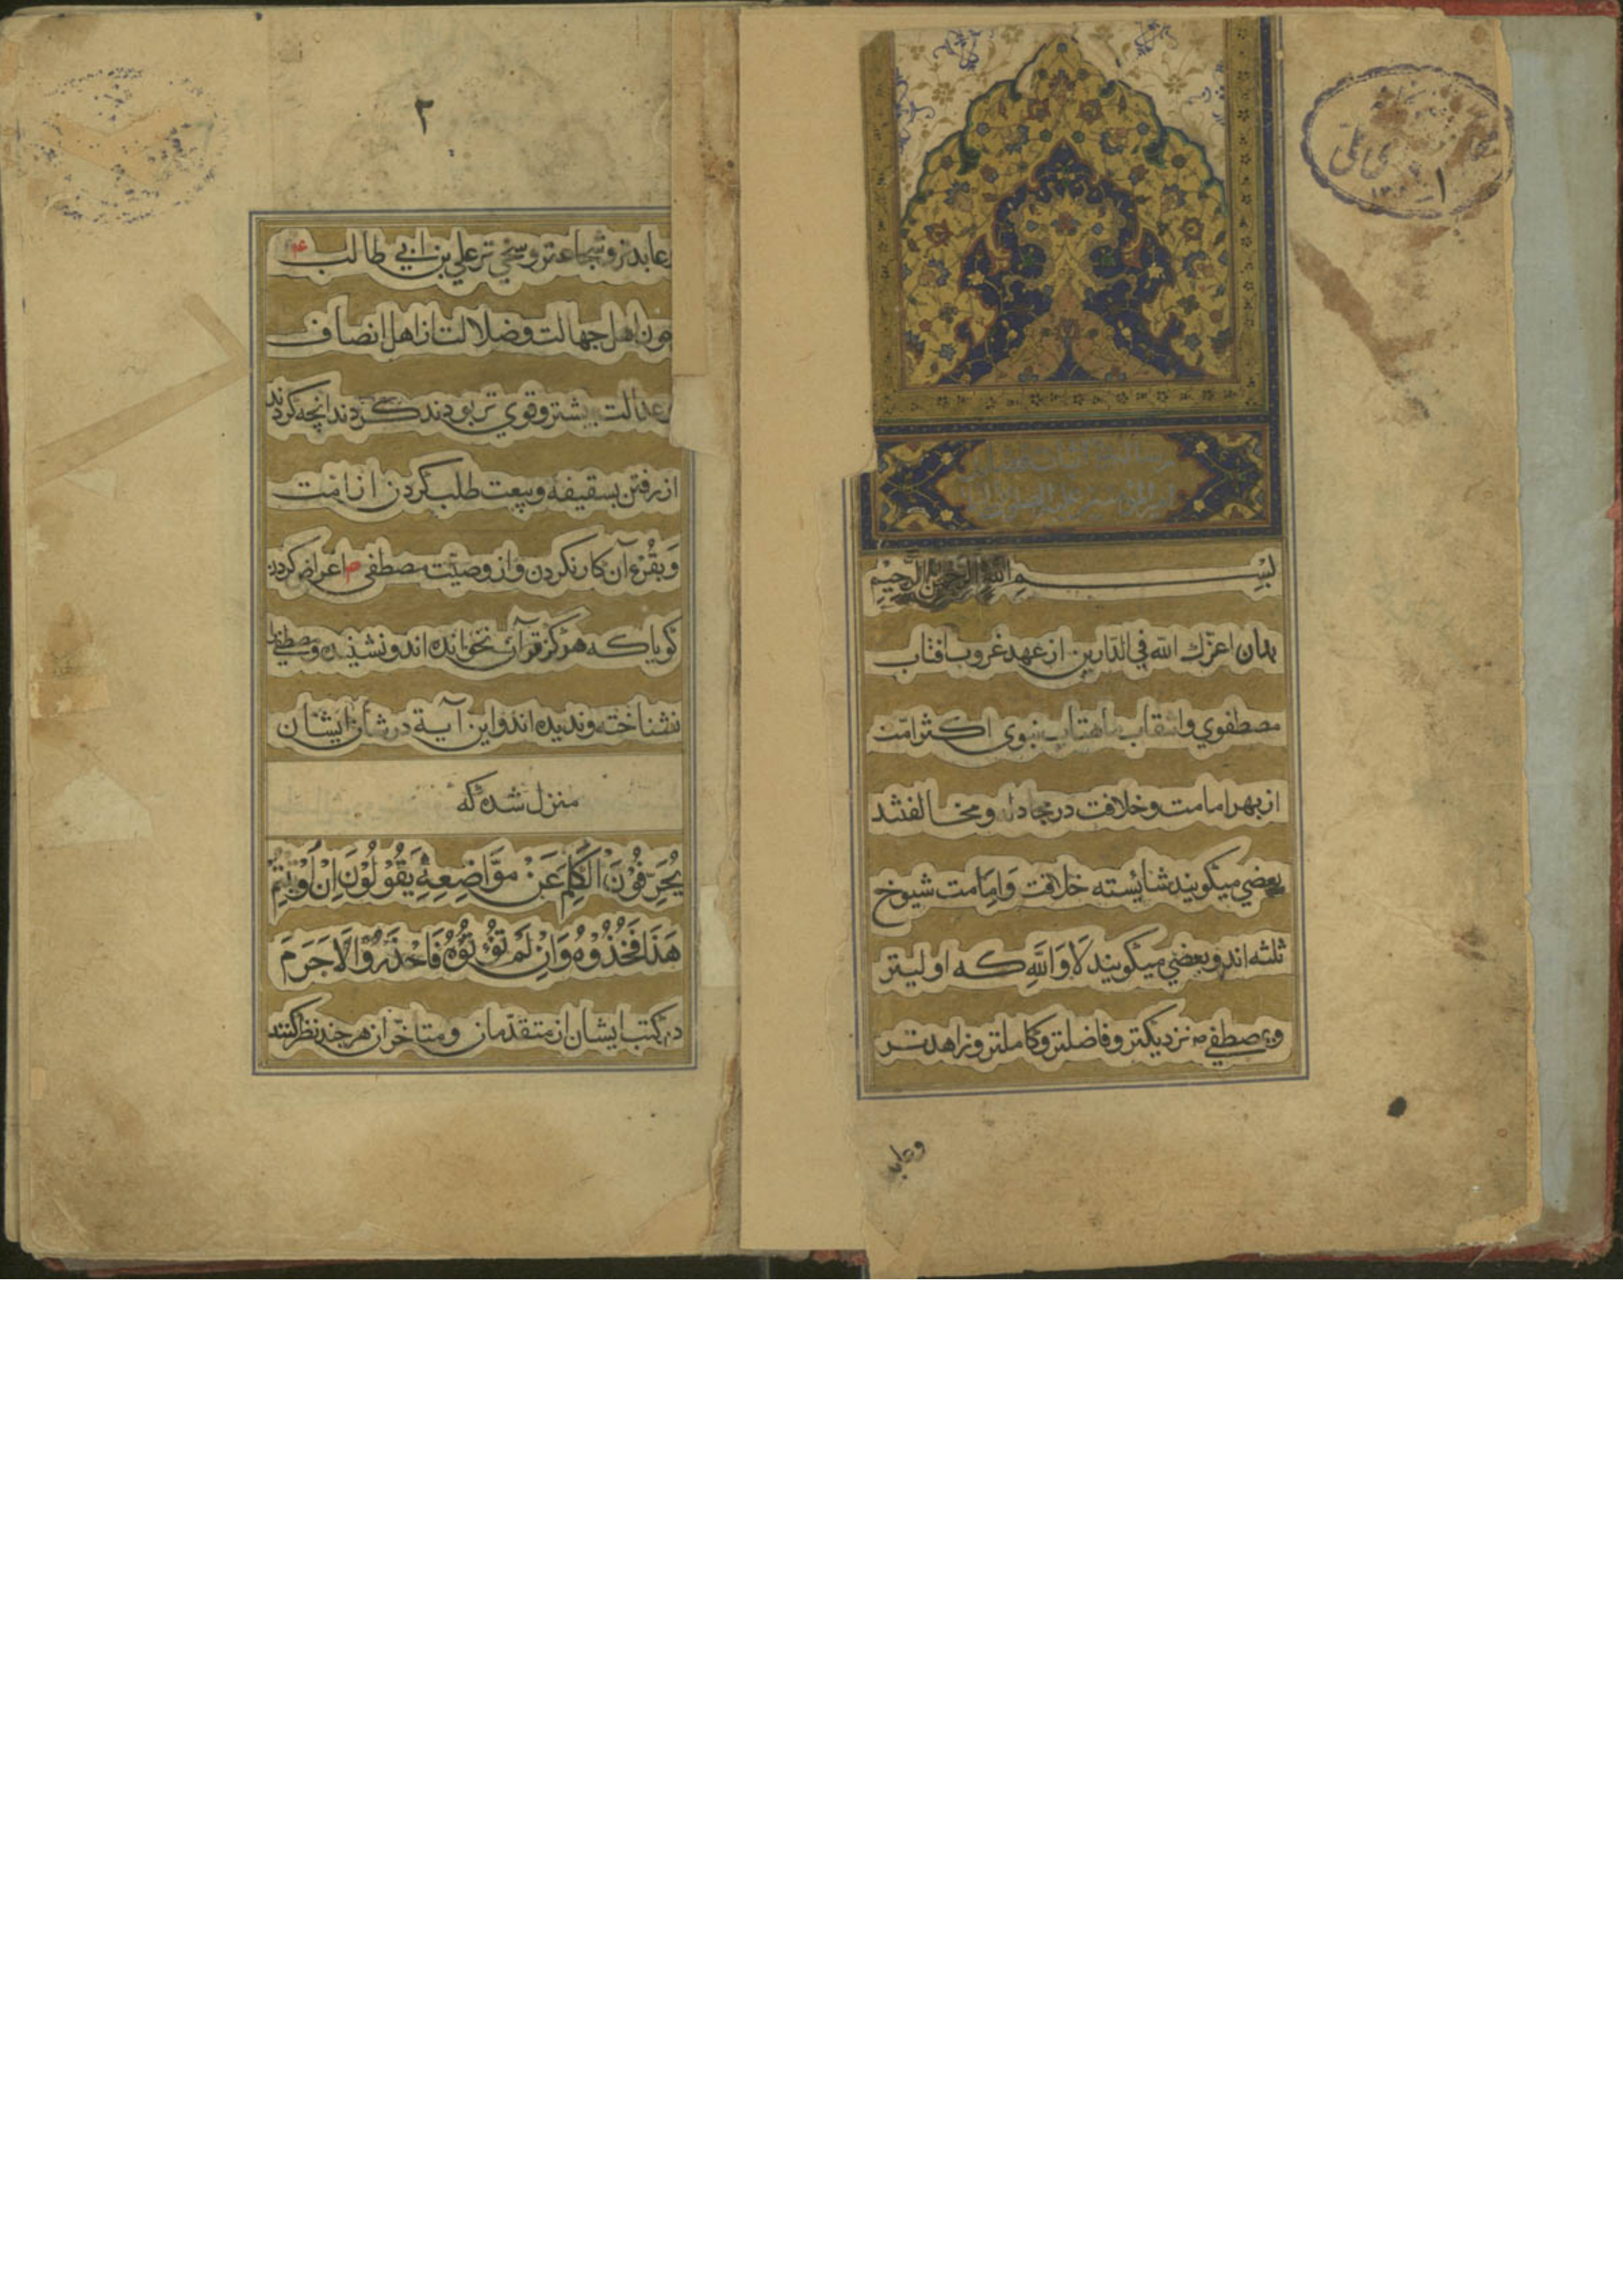 بسم الله الرحمن الرحيم
بدان اعزّك الله في الدّارين از عهد غروب افتاب
مصطفوي وانتقاب ماهتاب نبوى اكثر امّت
از بهر امامت و خلافت در مجادله و مخالفتند
بعضي ميكويند شايسته خلافت وَاِمَامت شيوخ
ثلثه اند و بعضي ميكويند لَا وَاللَّهِ كه اوليتر
وبمصطفي م نزديكتر و فاضلتر و كاملتر و زاهدتر
وعابد
۱
۲
وعابدتر و شجاعتر و سخي تر علي بن ابي طالب ع
چون اهل جهالت و ضلالت از اهل انصاف
وعدالت بيشتر و قوي تر بودند كردند انچه كردند
از رفتن بسقيفه و بيعت طلب كردن از امّت
وَبقُرْءآن كار نكردن و از وصيّت مصطفي م اعراض كردن
كويا كه هركز قرآن نخوانده اند و نشنيده و مصطفي را
نشناخته و نديده اند و اين آية در شان ايشان
منزل شده كه
يُحَرِّفُوْنَ الْكَلِمَ عَنْ مَوَّاضِعِهٖ يَقُوْلُوْنَ اِنْ اُوْتِيْتُمْ
هَذَا فَخُذُوْهُ وَاِنْ لَمْ تُؤْتَوْهُ فَاحْذَرُوْا لَا جَرَمَ
در كتب ايشان از متقدّمان و متاخّران هر چند نظر كنند